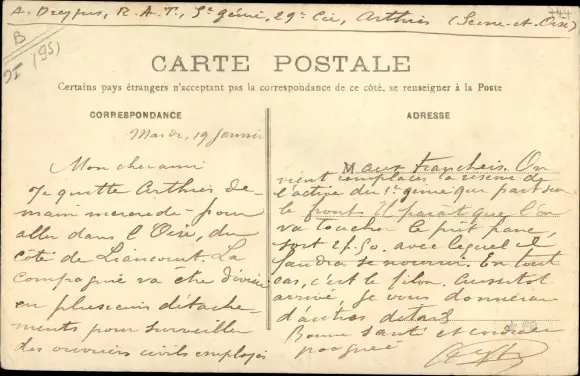 A. Dreyfus, R.A.T., 5e génie, 29e Cie, Arthies (Seine-et-Oise)
B
(95)
CARTE POSTALE
Certains pays étrangers n'acceptant pas la correspondance de ce côté, se renseigner à la Poste
CORRESPONDANCE
Mardi, 19 Janvier
Mon cher ami
Je quitte Arthies de-
main mercredi pour
aller dans l'Oise, du
côté de Liancourt. La
Compagnie va être divisée
en plusieurs détache-
ments pour surveiller
des ouvriers civils employés
ADRESSE
M aux tranchées. On
vient remplacer la réserve de
l'active du 1er génie qui part sur
le front. Il paraît que l'on
va toucher le prêt franc,
soit 2f.50. avec lequel il
faudra se nourrir. En tout
cas, c'est le filon. Aussitôt
arrivé, je vous donnerai
d'autres détails
Bonne santé et cordiale
poignée